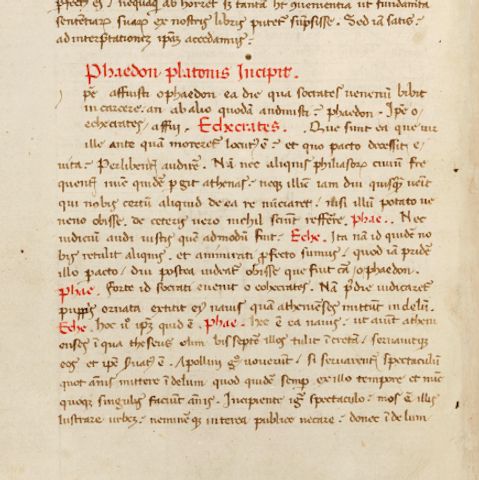 nequaq ab horret
sententiaru suaru ex nostris libris putet supsisse. Sed iam satis:
ad interptatione ipam accedamus:
Phaedon platonis Incipit.
pe affuisti o phaedon ea die qua socrates venenu bibit
in carcere: an ab alio quoda audivisti: phaedon. Ipe o
echecrates, affui. Echecrates. Que sunt ea que vir
ille ante qua moreret locut e: et quo pacto decessit e
vita: Perlibent audire. Na nec aliquis
quent nuc quide p git athenas: neq illuc iam diu quisq venit
qui nobis certu aliquid de ea re nuciaret: nisi illum potato ve
neno obisse. de ceteris vero nichil scint refferre. Phae. Nec
iudiciu audi istis que admodu fuit: Eche. Ita na id quide no
bis retulit aliquis. et ammirati pfecto sumus: quod iam pride
illo facto, diu postea videat obisse que fuit ca, o phaedon.
Phae. forte id socrati evenit o echecrates. Na p die iudicaret
puppis ornata extitit ei navis qua athenieses mittut in delu.
Eche. hoc v ipz quid e. Phae. hec e ea navis: ut aiunt atheni
enses i qua theseus olim bis septe illos tulit i creta: servavitq
eos et ipe svat e. Apollini g voverut: si servarent spectaculu
quot anis mittere i delum. quod quide semp ex illo tempore et nuc
quoq singulis faciunt anis. Incipiente igr spectaculo: mos e illis
lustrare urbez: nemineq interea publice necare: donec i delum